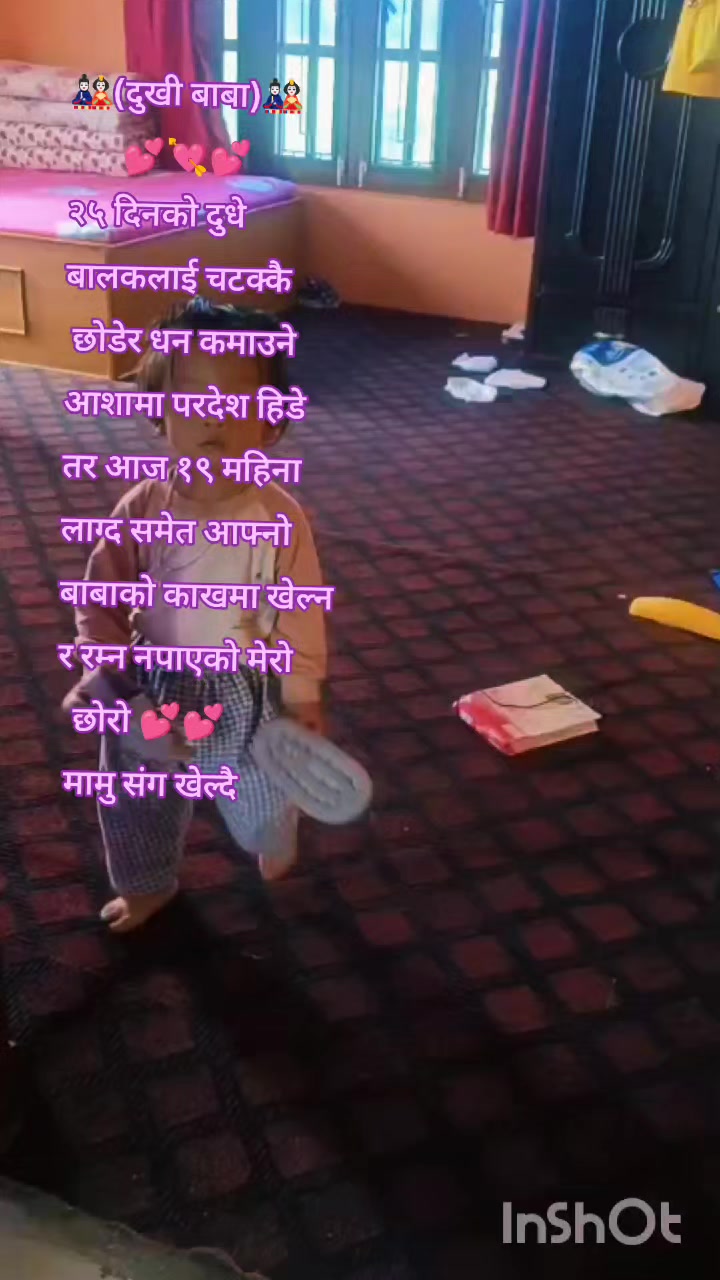 🎎(दुखी बाबा)🎎
💕💘💕
२५ दिनको दुधे
बालकलाई चटक्कै
छोडेर धन कमाउने
आशामा परदेश हिडे
तर आज १९ महिना
लाग्द समेत आफ्नो
बाबाको काखमा खेल्न
र रम्न नपाएको मेरो
छोरो 💕💕
मामु संग खेल्दै
InShOt